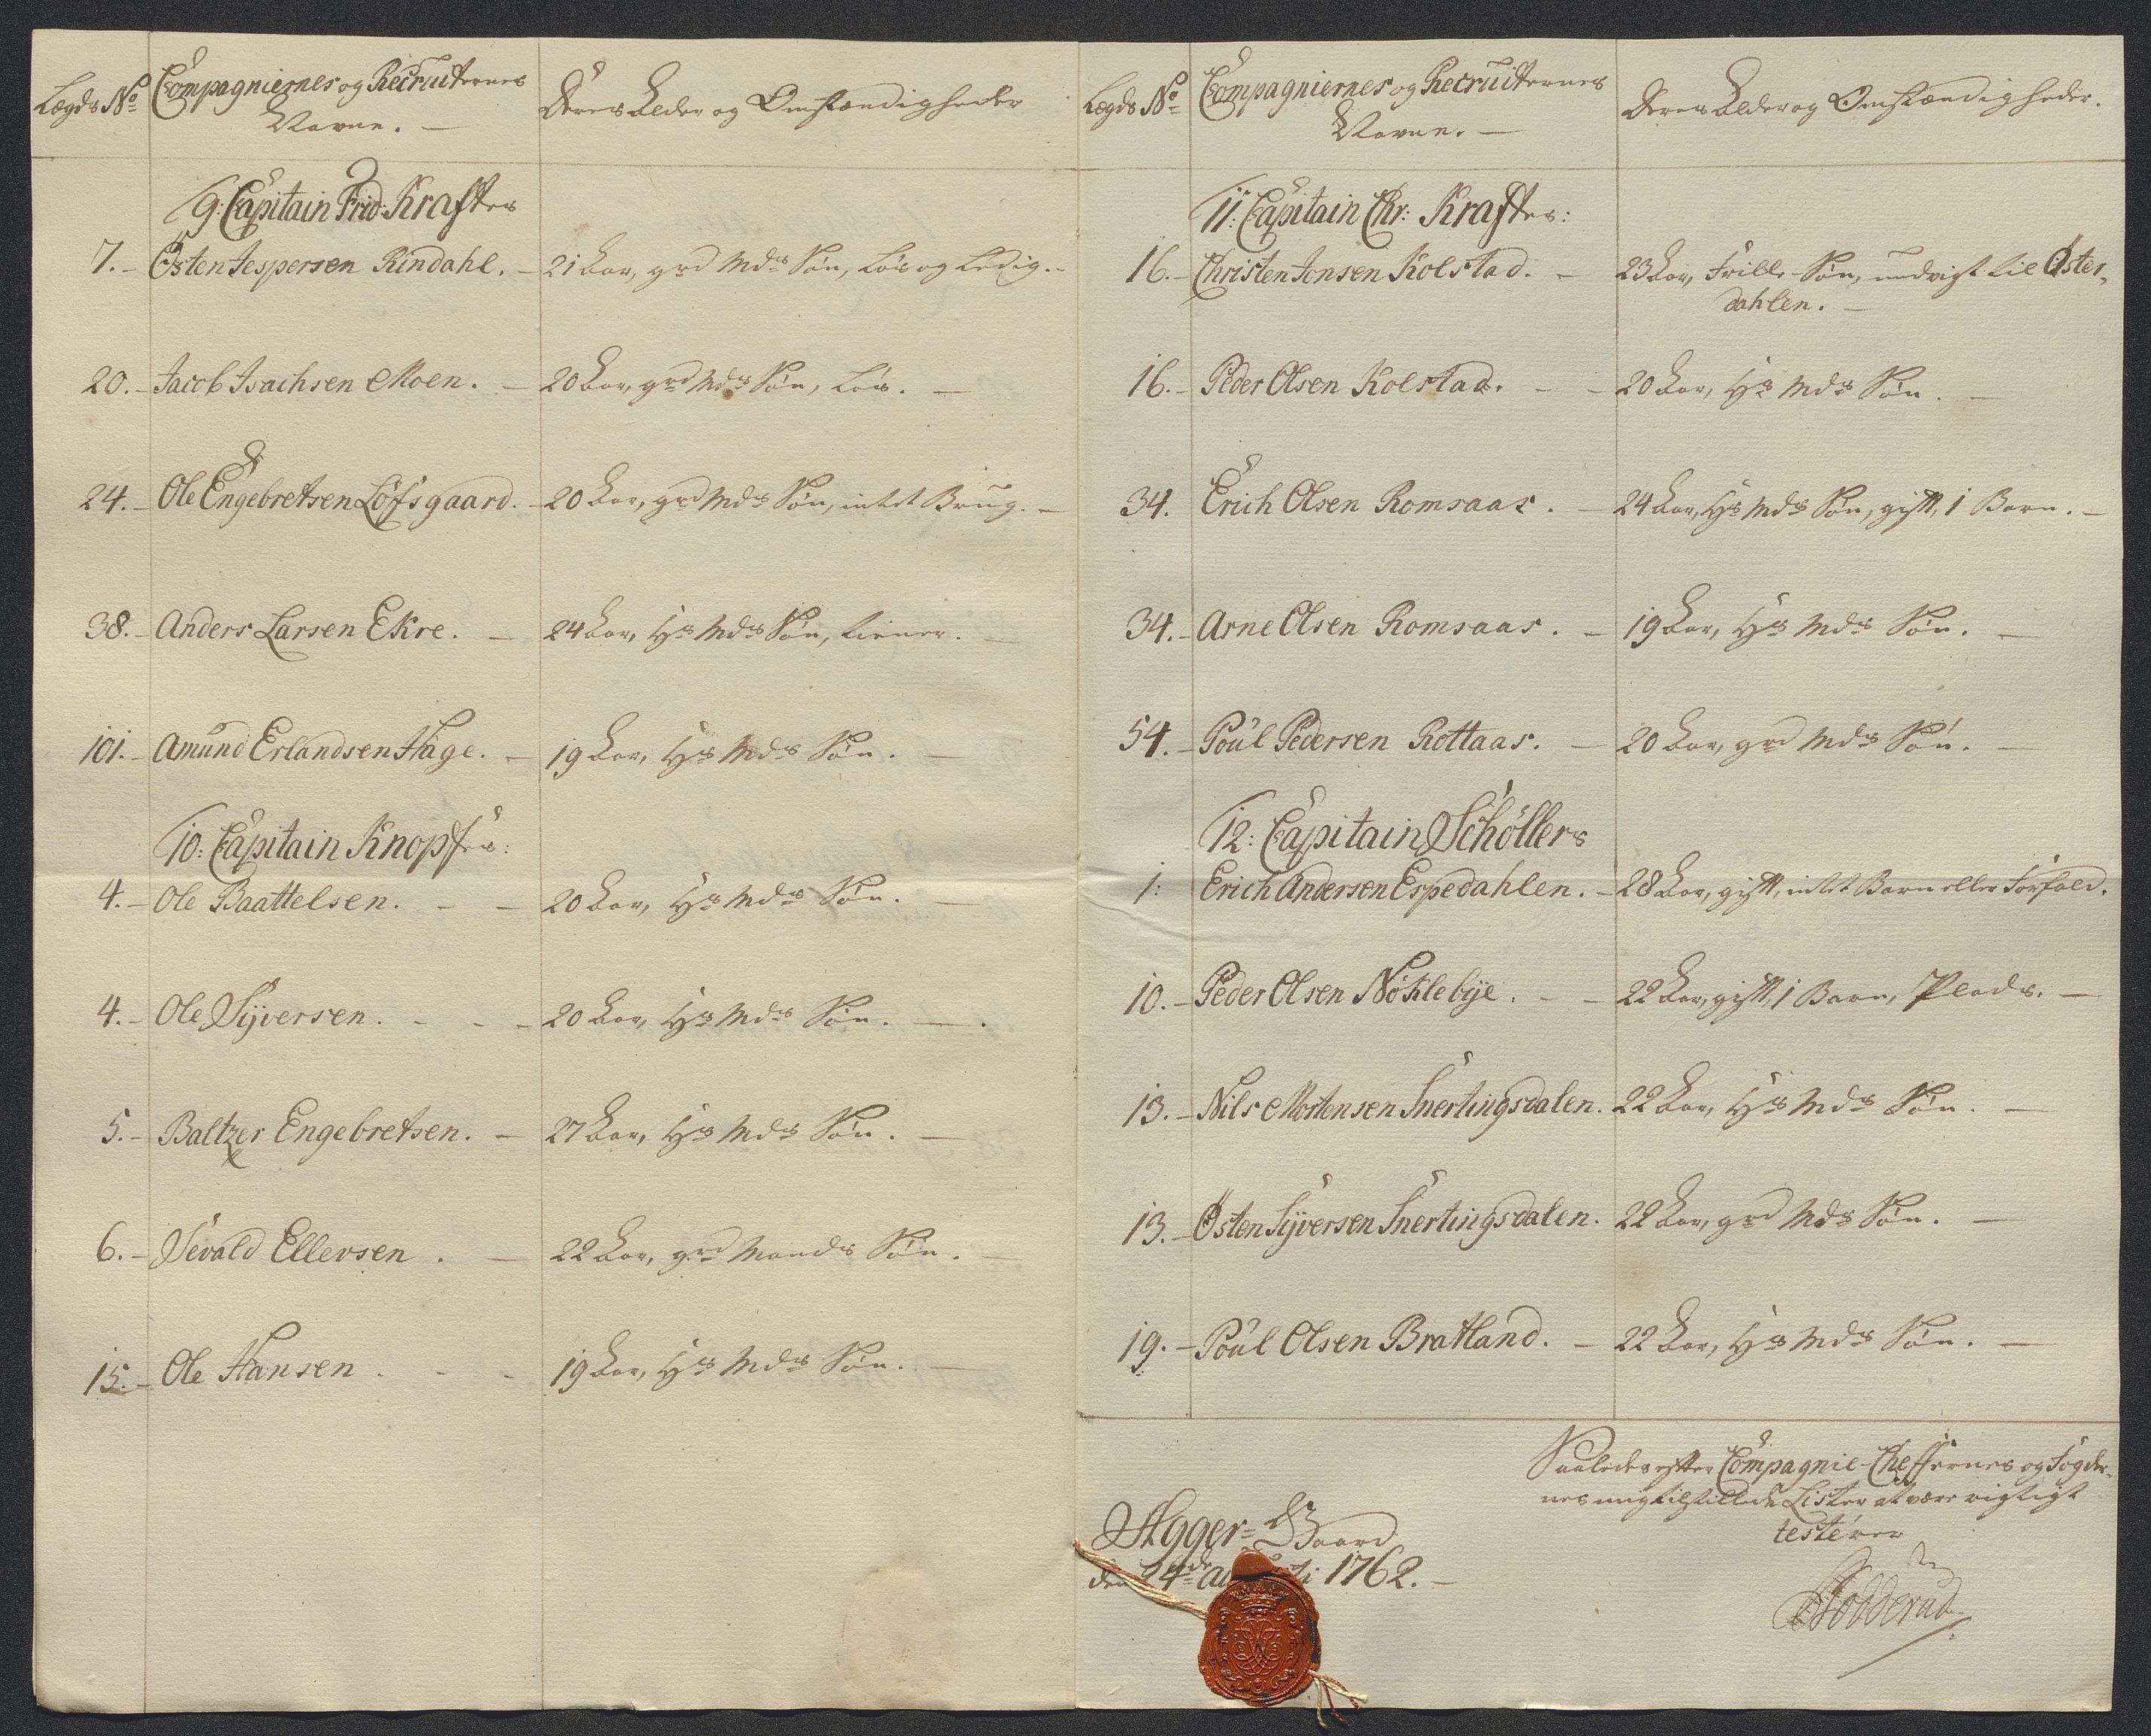 Lægds No
Compagniernes og Recruternes
Navne.
Deres Alder og Omstændigheder
9: Capitain Frid: Krafts
7. Østen Jespersen Rindahl. 21 aar, grd Mds Søn, løs og ledig.
20. Jacob Isachsen Moen. 20 aar, grd Mds Søn, løs.
24. Ole Engebretsen Løfsgaard. 20 aar, grd Mds Søn, intet Brug.
38. Anders Larsen Ekre. 24 aar, Hs Mds Søn, tiener.
101. Amund Erlandsen Hage. 19 aar, Hs Mds Søn.
10: Capitain Knopfs:
4. Ole Baattelsen. 20 aar, Hs Mds Søn.
4. Ole Syversen. 20 aar, Hs Mds Søn.
5. Baltzer Engebretsen. 27 aar, Hs Mds Søn.
6. Sevald Ellevsen. 22 aar, grd Mands Søn.
15. Ole Hansen. 19 aar, Hs Mds Søn.
Lægds No
Compagniernes og Recruternes
Navne.
Deres Alder og Omstændigheder.
11: Capitain Chr: Krafts:
16. Christen Jonsen Kolstad. 23 aar, Frille-Søn, undvigt til Øster-
dahlen.
16. Peder Olsen Kolstad. 20 aar, Hs Mds Søn.
34. Erich Olsen Romsaas. 24 aar, Hs Mds Søn, gift, 1 Barn.
34. Arne Olsen Romsaas. 19 aar, Hs Mds Søn.
54. Poul Pedersen Rottaas. 20 aar, grd Mds Søn.
12: Capitain Schøllers
1: Erich Andersen Espedahlen. 28 aar, gift, intet Barn eller Forfald.
10. Peder Olsen Nøklebye. 22 aar, gift, 1 Barn, Plads.
13. Nils Mortensen Snertingsdalen. 22 aar, Hs Mds Søn.
13. Østen Syversen Snertingsdalen. 22 aar, grd Mds Søn.
19. Poul Olsen Bratland. 22 aar, Hs Mds Søn.
Saaledes efter Compagnie-Cheffernes og Fogder-
nes mig tilstillede Lister at være rigtigt
testerer
Agger-Gaard
den 14de 1762.